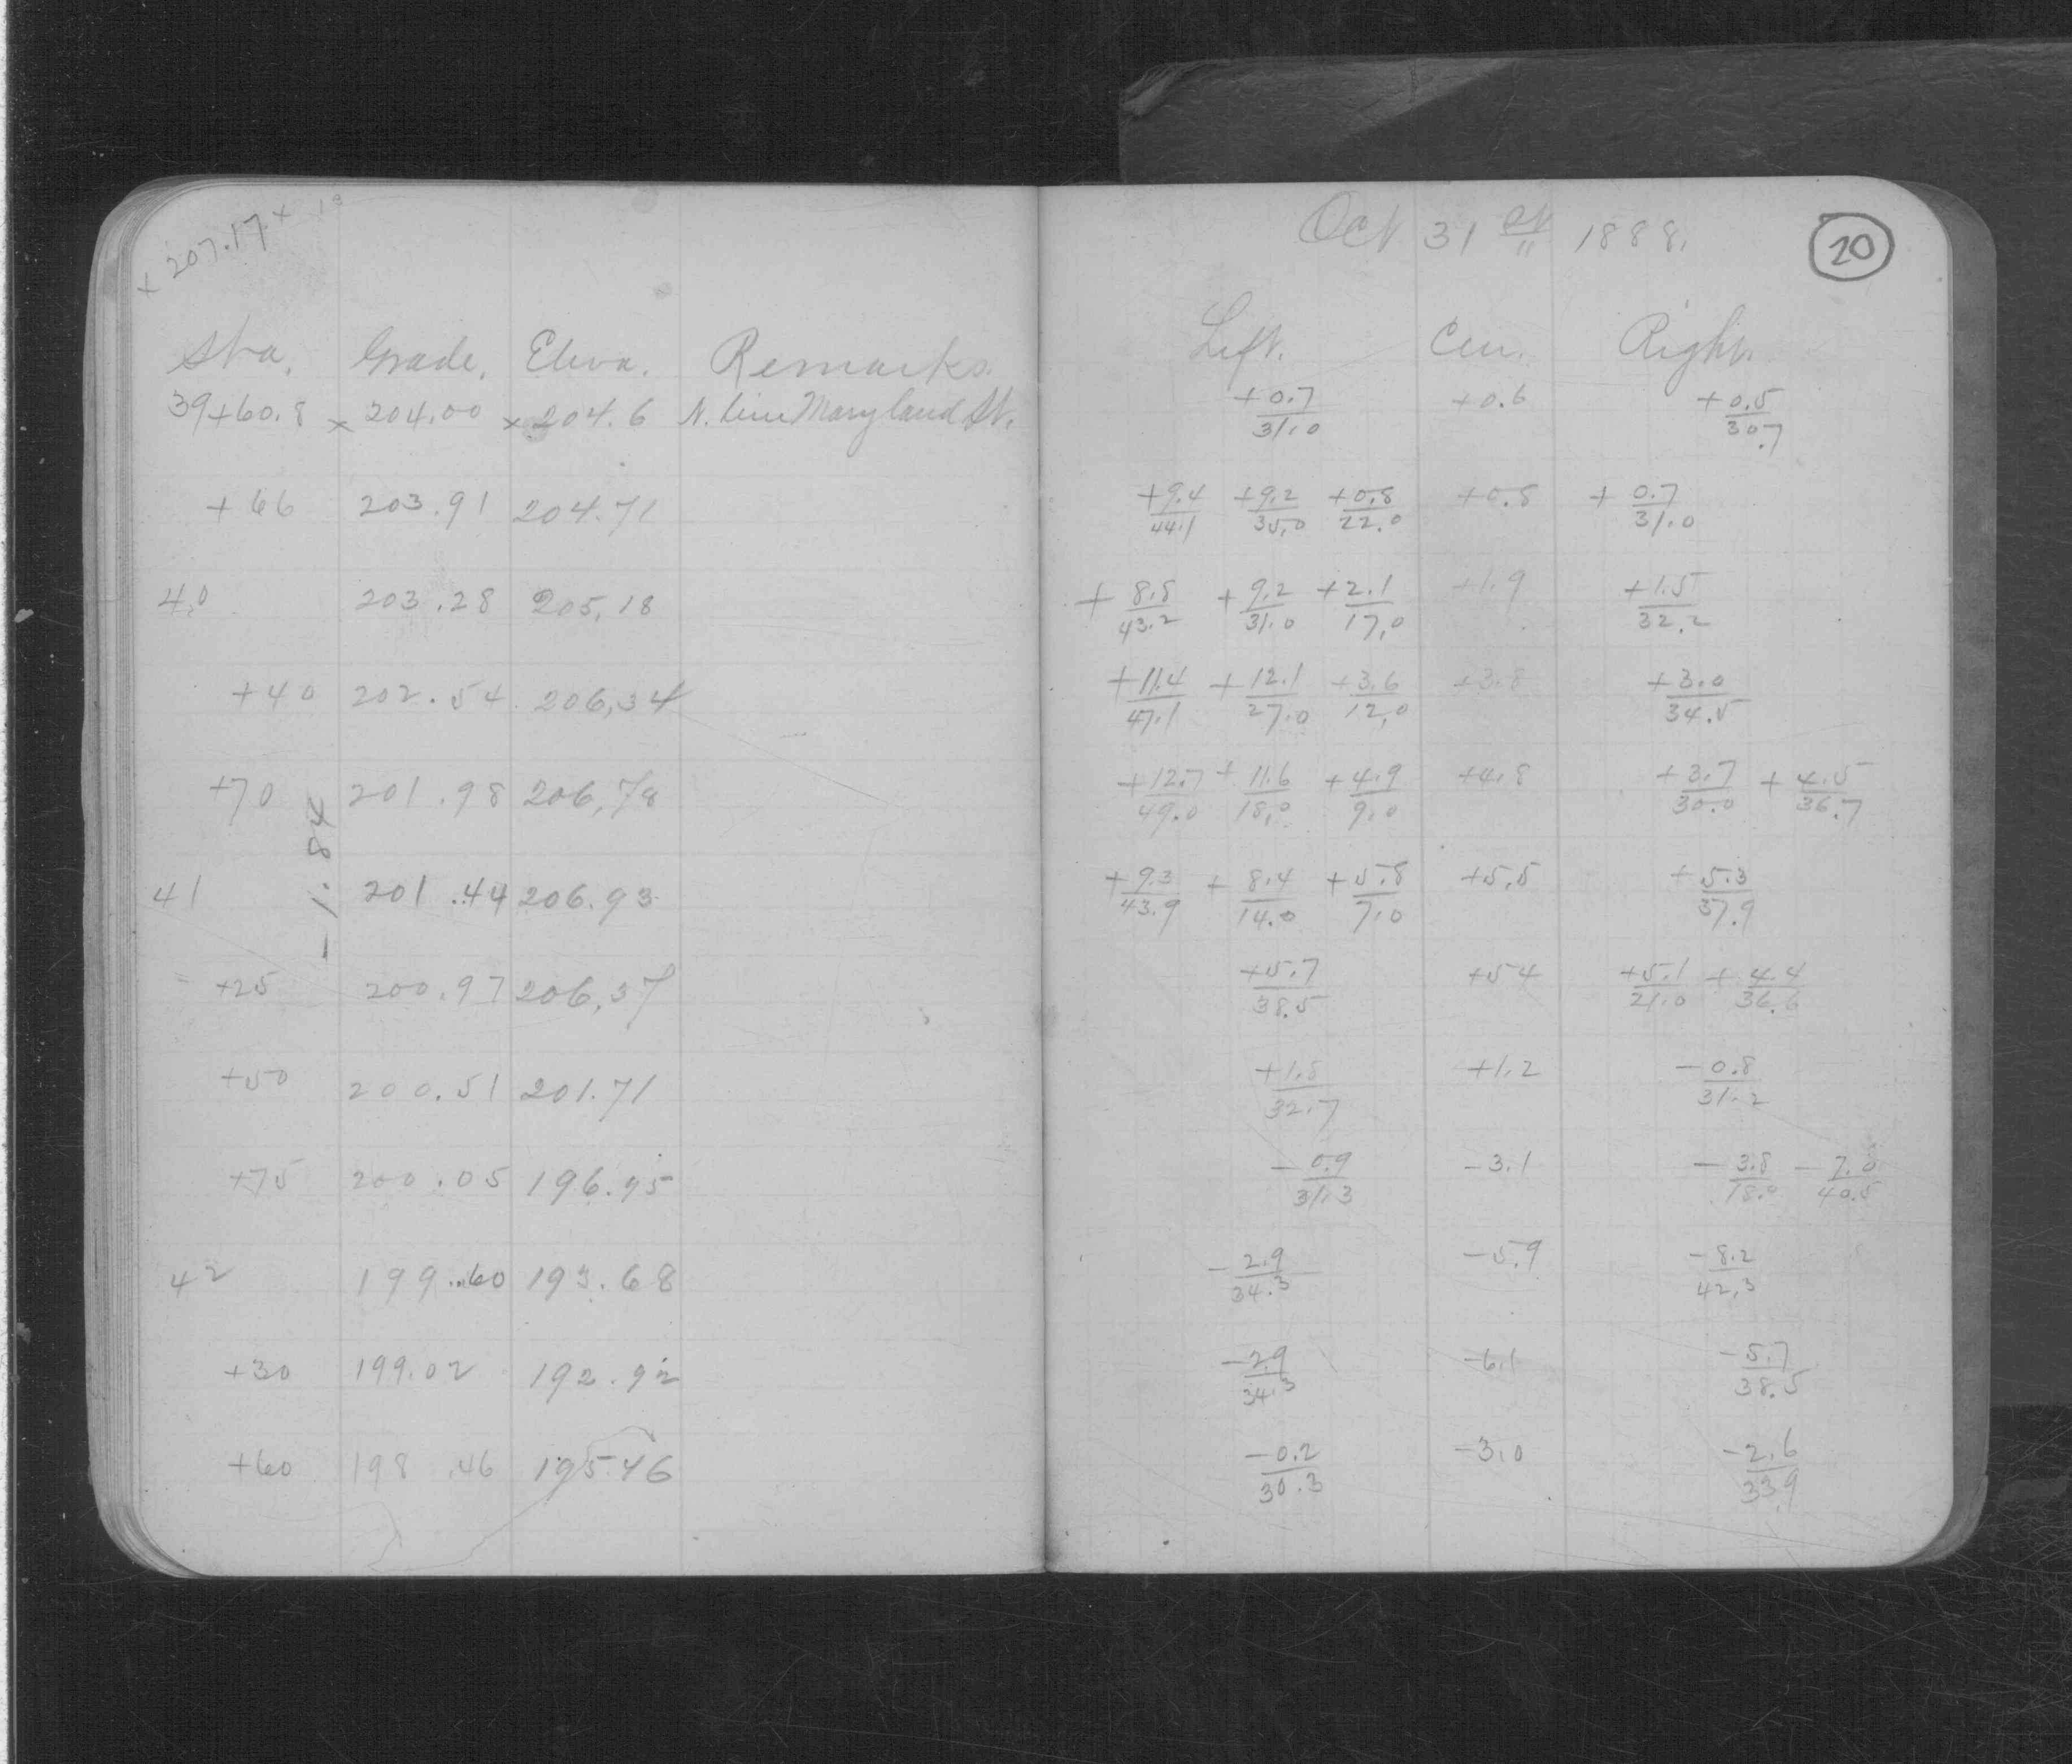 + 207.17 +
Sta. Grade. Eleva. Remarks.
39+60.8 x 204.00 x 204.6 N. Line Maryland St.
+66 203.91 204.71
40 203.28 205.18
+40 202.54 206.34
+70 201.98 206.78
- 1.84
41 201.44 206.93
+25 200.97 206.37
+50 200.51 201.71
+75 200.05 196.95
42 199.60 193.68
+30 199.02 192.92
+60 198.46 195.46
Oct 31st 1888.
20
Left. Cen. Right.
+0.7/31.0 +0.6 +0.5/30.7
+9.4/44.1 +9.2/35.0 +0.8/22.0 +0.8 +0.7/31.0
+8.8/43.2 +9.2/31.0 +2.1/17.0 +1.9 +1.5/32.2
+11.4/47.1 +12.1/27.0 +3.6/12.0 +3.8 +3.0/34.5
+12.7/49.0 +11.6/18.0 +4.9/9.0 +4.8 +3.7/30.0 +4.5/36.7
+9.3/43.9 +8.4/14.0 +5.8/7.0 +5.5 +5.3/37.9
+5.7/38.5 +5.4 +5.1/21.0 +4.4/36.6
+1.8/32.7 +1.2 -0.8/31.2
-0.9/31.3 -3.1 -3.8/18.0 -7.0/40.5
-2.9/34.3 -5.9 -8.2/42.3
-2.9/34.3 -6.1 -5.7/38.5
-0.2/30.3 -3.0 -2.6/33.9